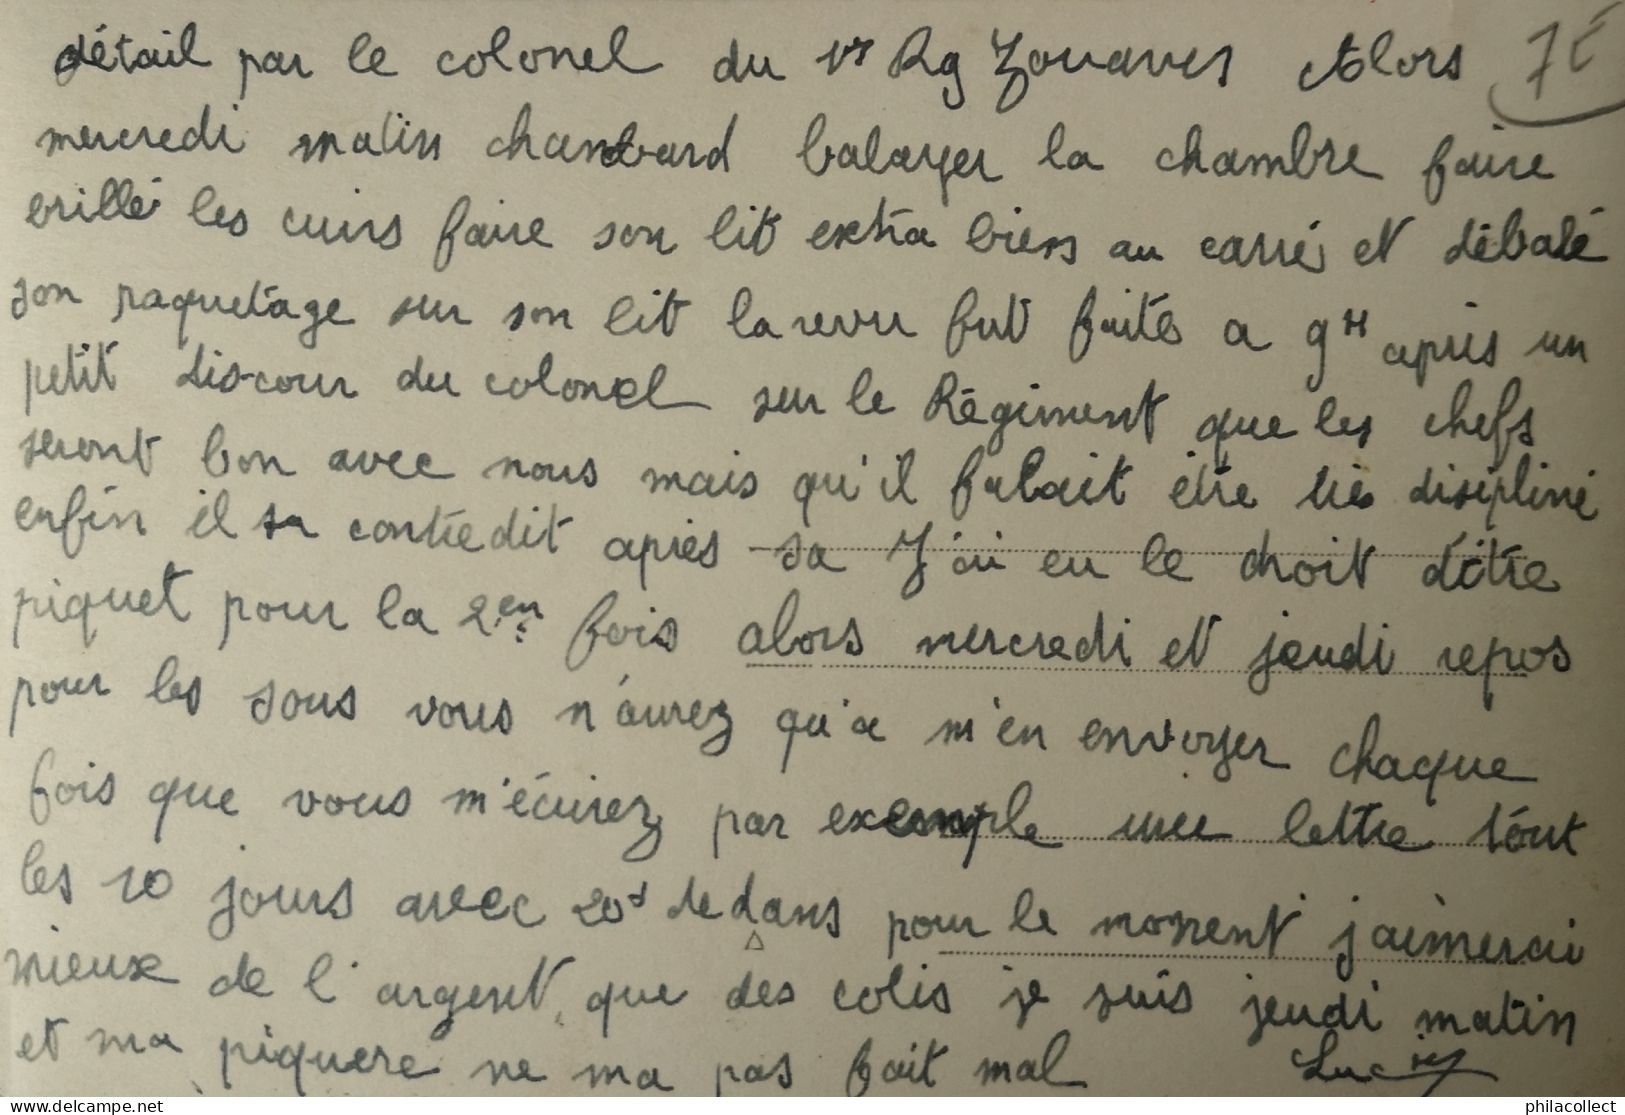 détail par le colonel du 1er Rg Zouaves Alors 7É
mercredi matin chambard balayer la chambre faire
brillé les cuirs faire son lit extra bien au carré et débalé
son paquetage sur son lit la revu fut faite a 9H après un
petit discour du colonel sur le Régiment que les chefs
seront bon avec nous mais qu'il falait être très disipliné
enfin il sa contredit après sa J'ai eu le droit d'être
piquet pour la 2em fois alors mercredi et jeudi repos
pour les sous vous n'aurez qu'a m'en envoyer chaque
fois que vous m'écrirez par exemple une lettre tout
les 10 jours avec 20d dedans pour le moment j'aimerai
mieux de l'argent que des colis je suis jeudi matin
et ma piquere ne ma pas fait mal Lucien
philacollect